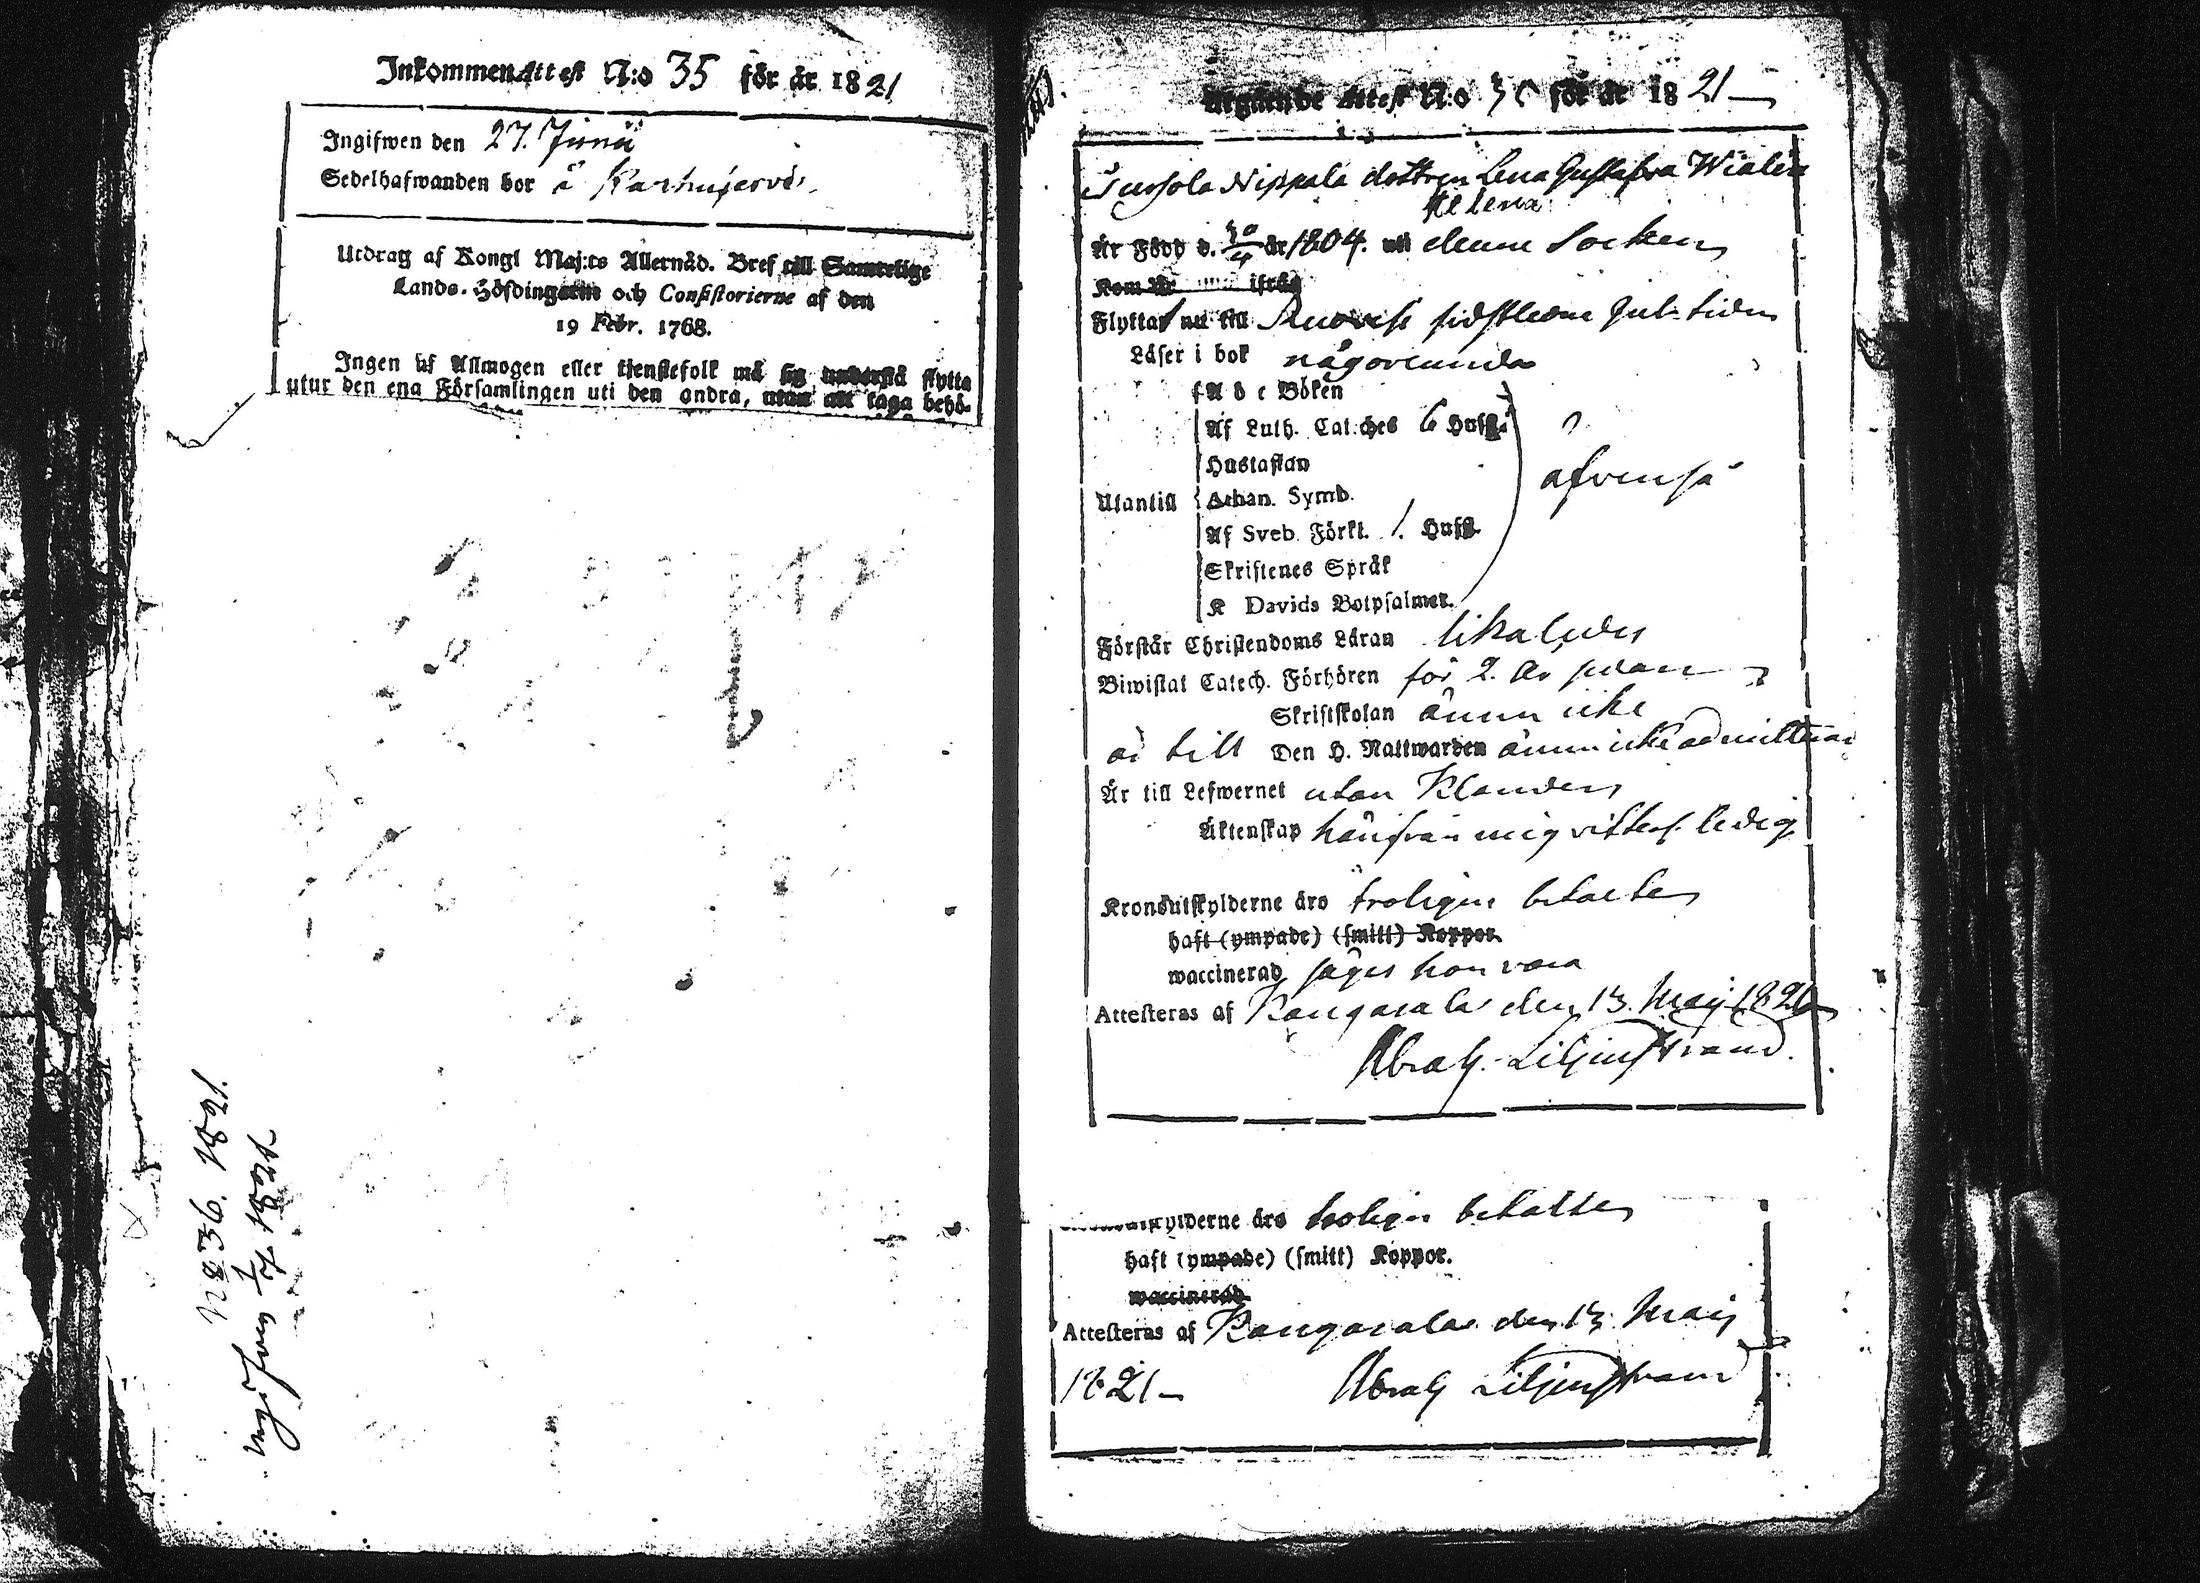 Inkommen Attest N:o 35 för år 1821
Ingifwen den 27. Junii
Sedelhafwanden bor å Karhujervi
Utdrag af Kongl Maj:ts Allernåd. Bref till Samtelige
Lands-Höfdingarne och Consistorierne af den
19 Febr. 1768.
Ingen af Allmogen eller tjenstefolk må sig understå flytta
utur den ena Församlingen uti den andra, utan att taga behö-
N:o 36. 1821.
ingifven 1/7 1821
Utgående Attest N:o för år 1821
Nippala dottren Lena Gustafva
Helena
Är Född d. år 1804. uti denne Socken
Kom År ifrån
Flyttat nu till sidstledne Jul-tiden
Läser i bok någorlunda
A b c Boken
Af Luth. Cat:ches 6 Hufst.
Hustaflan
Athan. Symb.
Utantill
Af Sveb. Förkl. 1. Hufst.
Skriftenes Språk
K Davids Botpsalmer.
äfvenså
Förstår Christendoms Läran likaledes
Biwistat Catech. Förhören för 2. år sedan
Skriftskolan ännu icke
är till Den H. Nattwarden ännu icke admitterad
Är till Lefwernet utan Klander
Äktenskap härifrån mig vitterl. ledig
Kronoutskylderne äro troligen betalte
haft (ympade) (smitt) Koppor.
waccinerad säges hon vara
Attesteras af Kangasala den 13. Maij 1821
Abrah. Liljenstrand.
utskylderne äro troligen betalte
haft (ympade) (smitt) Koppor.
waccinerad
Attesteras af Kangasala den 13. Maij
1821 Abrah Liljenstrand